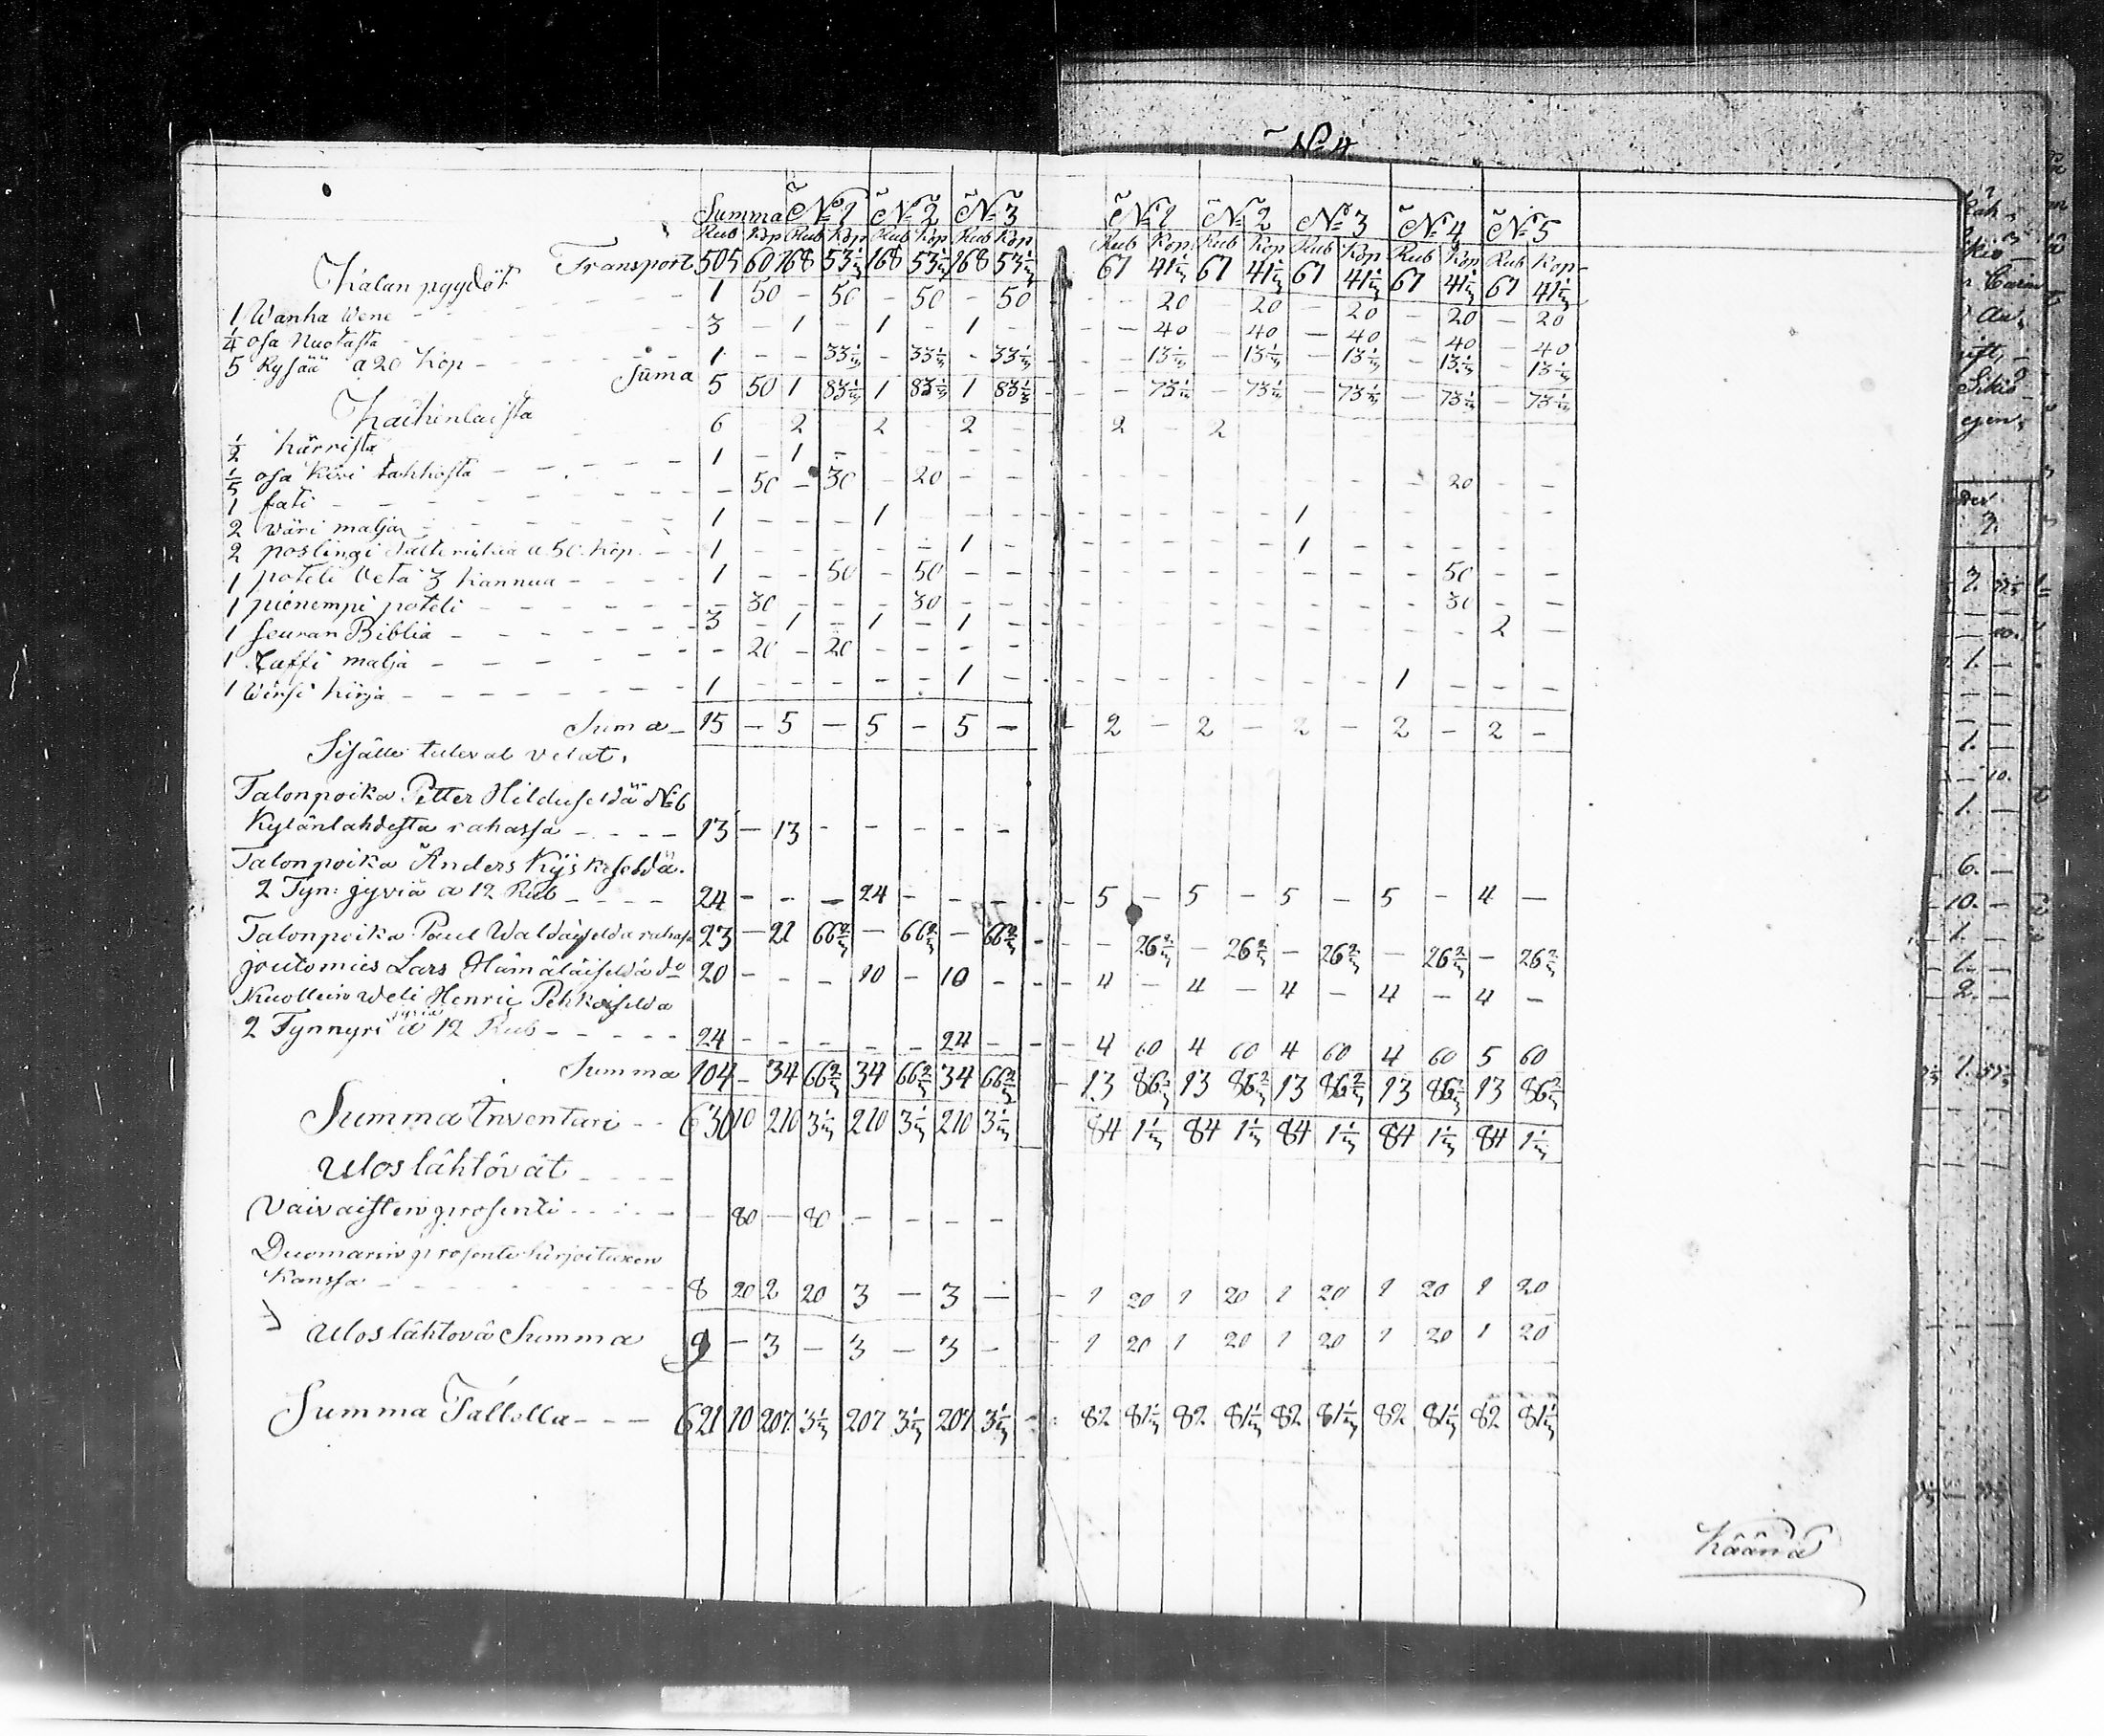 № 4
Summa № 1 № 2 № 3 № 1 № 2 № 3 № 4 № 5
Rub Kop Rub Kop Rub Kop Rub Kop Rub Kop Rub Kop Rub Kop Rub Kop Rub Kop
Transport 505 60 168 53 1/3 168 53 1/3 168 53 1/3 67 41 1/3 67 41 1/3 67 41 1/3 67 41 1/3 67 41 1/3
Kalan pyydöt
1 Wanha Wene - - 1 50 - 50 - 50 - 50 - 20 - 20 - 20 - 20 - 20
1/4 osa Nuotasta - - 3 - 1 - 1 - 1 - - 40 - 40 - 40 - 40 - 40
5 Rysää a 20 Kop - 1 - - 33 1/3 - 33 1/3 - 33 1/3 - 13 1/3 - 13 1/3 - 13 1/3 - 13 1/3 - 13 1/3
Suma 5 50 1 83 1/3 1 83 1/3 1 83 1/3 - 73 1/3 - 73 1/3 - 73 1/3 - 73 1/3 - 73 1/3
Kaikenlaista
1/2 Kärristä 6 - 2 2 - 2 - 2 - 2
1/5 osa Kivi tahkosta - - 1 - 1 -
1 fati - - - 50 - 30 - 20 - - 20 - -
2 wäri malja - - 1 - - - 1 - - 1 -
2 poslingi a 50 Kop - 1 - - - - - 1 - 1 -
1 poteli Veta 3 Kannua - - 1 - - 50 - 50 - - 50 - -
1 pienempi poteli - - - 30 - - - 30 - - 30 - -
1 Seuran Biblia - - 3 - 1 - 1 - 1 - 2 -
1 Kaffi malja - - - 20 - 20 - - - -
1 Wirsi Kirja - - 1 - - - - - 1 - 1 - - -
Suma - 15 - 5 - 5 - 5 - 2 - 2 - 2 - 2 - 2 -
Sisälle tulevat velat.
Talonpoika Petter № 6
Kylänlahdesta rahassa - - 13 - 13 - - - - -
Talonpoika Anders
2 Tyn: jyviä a 12 Rub - - 24 - - - 24 - - - 5 - 5 - 5 - 5 - 4 -
Talonpoika Paul 23 - 21 66 2/3 - 66 2/3 - 66 2/3 - 26 2/3 - 26 2/3 - 26 2/3 - 26 2/3 - 26 2/3
joutomies Lars Hämäläiseldä do 20 - - - 10 - 10 - - 4 - 4 - 4 - 4 - 4 -
Kuollein weli Henric Pehkoiselda
2 Tynnyri jyviä a 12 Rub - - 24 - - - - - 24 - - 4 60 4 60 4 60 4 60 5 60
Summa 104 - 34 66 2/3 34 66 2/3 34 66 2/3 - 13 86 2/3 13 86 2/3 13 86 2/3 13 86 2/3 13 86 2/3
Summa Inventari - - 630 10 210 3 1/3 210 3 1/3 210 3 1/3 84 1 1/3 84 1 1/3 84 1 1/3 84 1 1/3 84 1 1/3
Ulos lähtövät - - -
Vaivaisten prosenti - - - 80 - 80 - - - -
Duomarin prosenti kirjoituxen
Kanssa - - 8 20 2 20 3 - 3 - - 1 20 1 20 1 20 1 20 1 20
Ulos lähtövä Summa 9 - 3 - 3 - 3 - 1 20 1 20 1 20 1 20 1 20
Summa Tallella - - - 621 10 207 3 1/3 207 3 1/3 207 3 1/3 82 81 1/3 82 81 1/3 82 81 1/3 82 81 1/3 82 81 1/3
Käännä